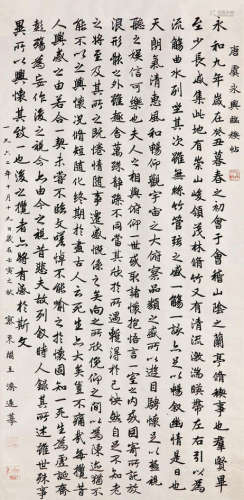 唐虞永興臨禊帖
永和九年歲在癸丑暮春之初會于會稽山陰之蘭亭脩稧事也羣賢畢
至少長咸集此地有崇山峻領茂林脩竹又有清流激湍暎帶左右引以為
流觴曲水列坐其次雖無絲竹管弦之盛一觴一詠亦足以暢敘幽情是日也
天朗氣清惠風和暢仰觀宇宙之大俯察品類之盛所以遊目騁懷足以極視
聽之娛信可樂也夫人之相與俯仰一世或取諸懷抱悟言一室之內或因寄所託放
浪形骸之外雖趣舍萬殊靜躁不同當其欣於所遇暫得於己快然自足不知老
之將至及其所之既惓情隨事遷感慨係之矣向之所欣俛仰之閒以為陳迹猶不
能不以之興懷況脩短隨化終期於盡古人云死生亦大矣豈不痛哉每攬昔
人興感之由若合一契未嘗不臨文嗟悼不能喻之於懷固知一死生為虛誕齊
彭殤為妄作後之視今亦由今之視昔悲夫故列敘時人錄其所述雖世殊事
異所以興懷其致一也後之攬者亦將有感於斯文
一九六二年十月十九日歲在壬寅之秋